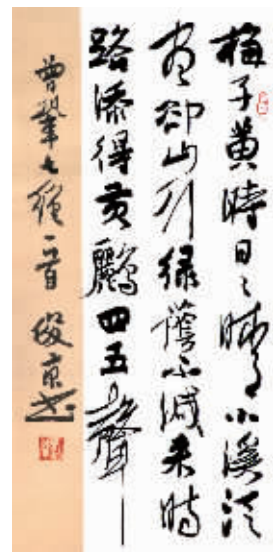 梅子黄時日々晴小溪泛
盡却山行綠蔭不減来時
路添得黄鸝四五聲
曾鞏七絕一首 俊京书